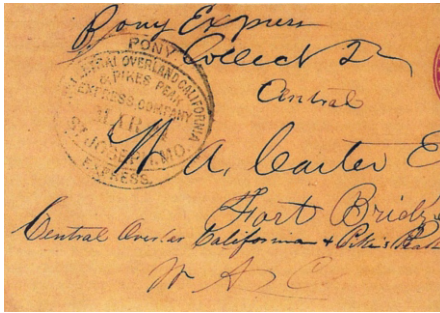 Pony Express
Collect 2
Central
PONY
CENTRAL OVERLAND CALIFORNIA
& PIKES PEAK
EXPRESS COMPANY
ST. JOSEPH, MO.
EXPRESS
W. A. Carter E
Fort Bridg
Central Over California + Pike's Peak